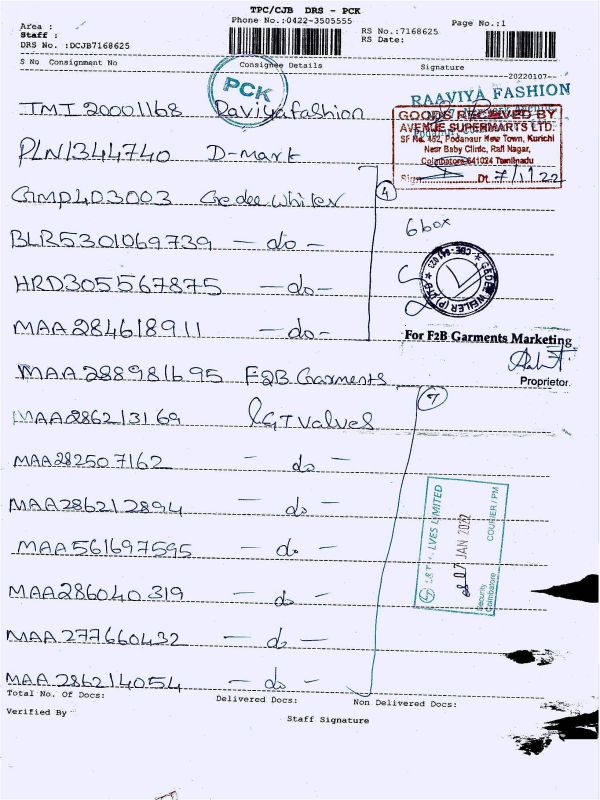 TPC/CJB DRS - PCK
Area : Phone No.:0422-3505555 Page No.:1
Staff : RS No.:7168625
DRS No. :DCJB7168625 RS Date:
S No Consignment No Consignee Details Signature
20220107
PCK
RAAVIYA FASHION
IMI20001168 Raviyafashion
GOODS RECEIVED BY
AVENUE SUPERMARTS LTD.
SF No. 452, Podanaur New Town, Kurichi
Near Baby Clinic, Rafi Nagar,
Coimbatore-641024 Tamilnadu
Sign Dt. 7/1/22
PLN1344740 D-mark
4
GMP403003 Gedee Whiler
6 box
BLR5301069739 - do -
HRD305567875 - do -
MAA284618911 - do -
For F2B Garments Marketing
Proprietor
MAA288981695 F2B Garments
7
MAA286213169 L&T valves
MAA282507162 - do -
MAA286212894 - do -
L&T VALVES LIMITED
07 JAN 2022
Security
Coimbatore
COURIER / PM
MAA561697595 - do -
MAA286040319 - do -
MAA277660432 - do -
MAA286214054 - do -
Total No. Of Docs: Delivered Docs: Non Delivered Docs:
Verified By Staff Signature